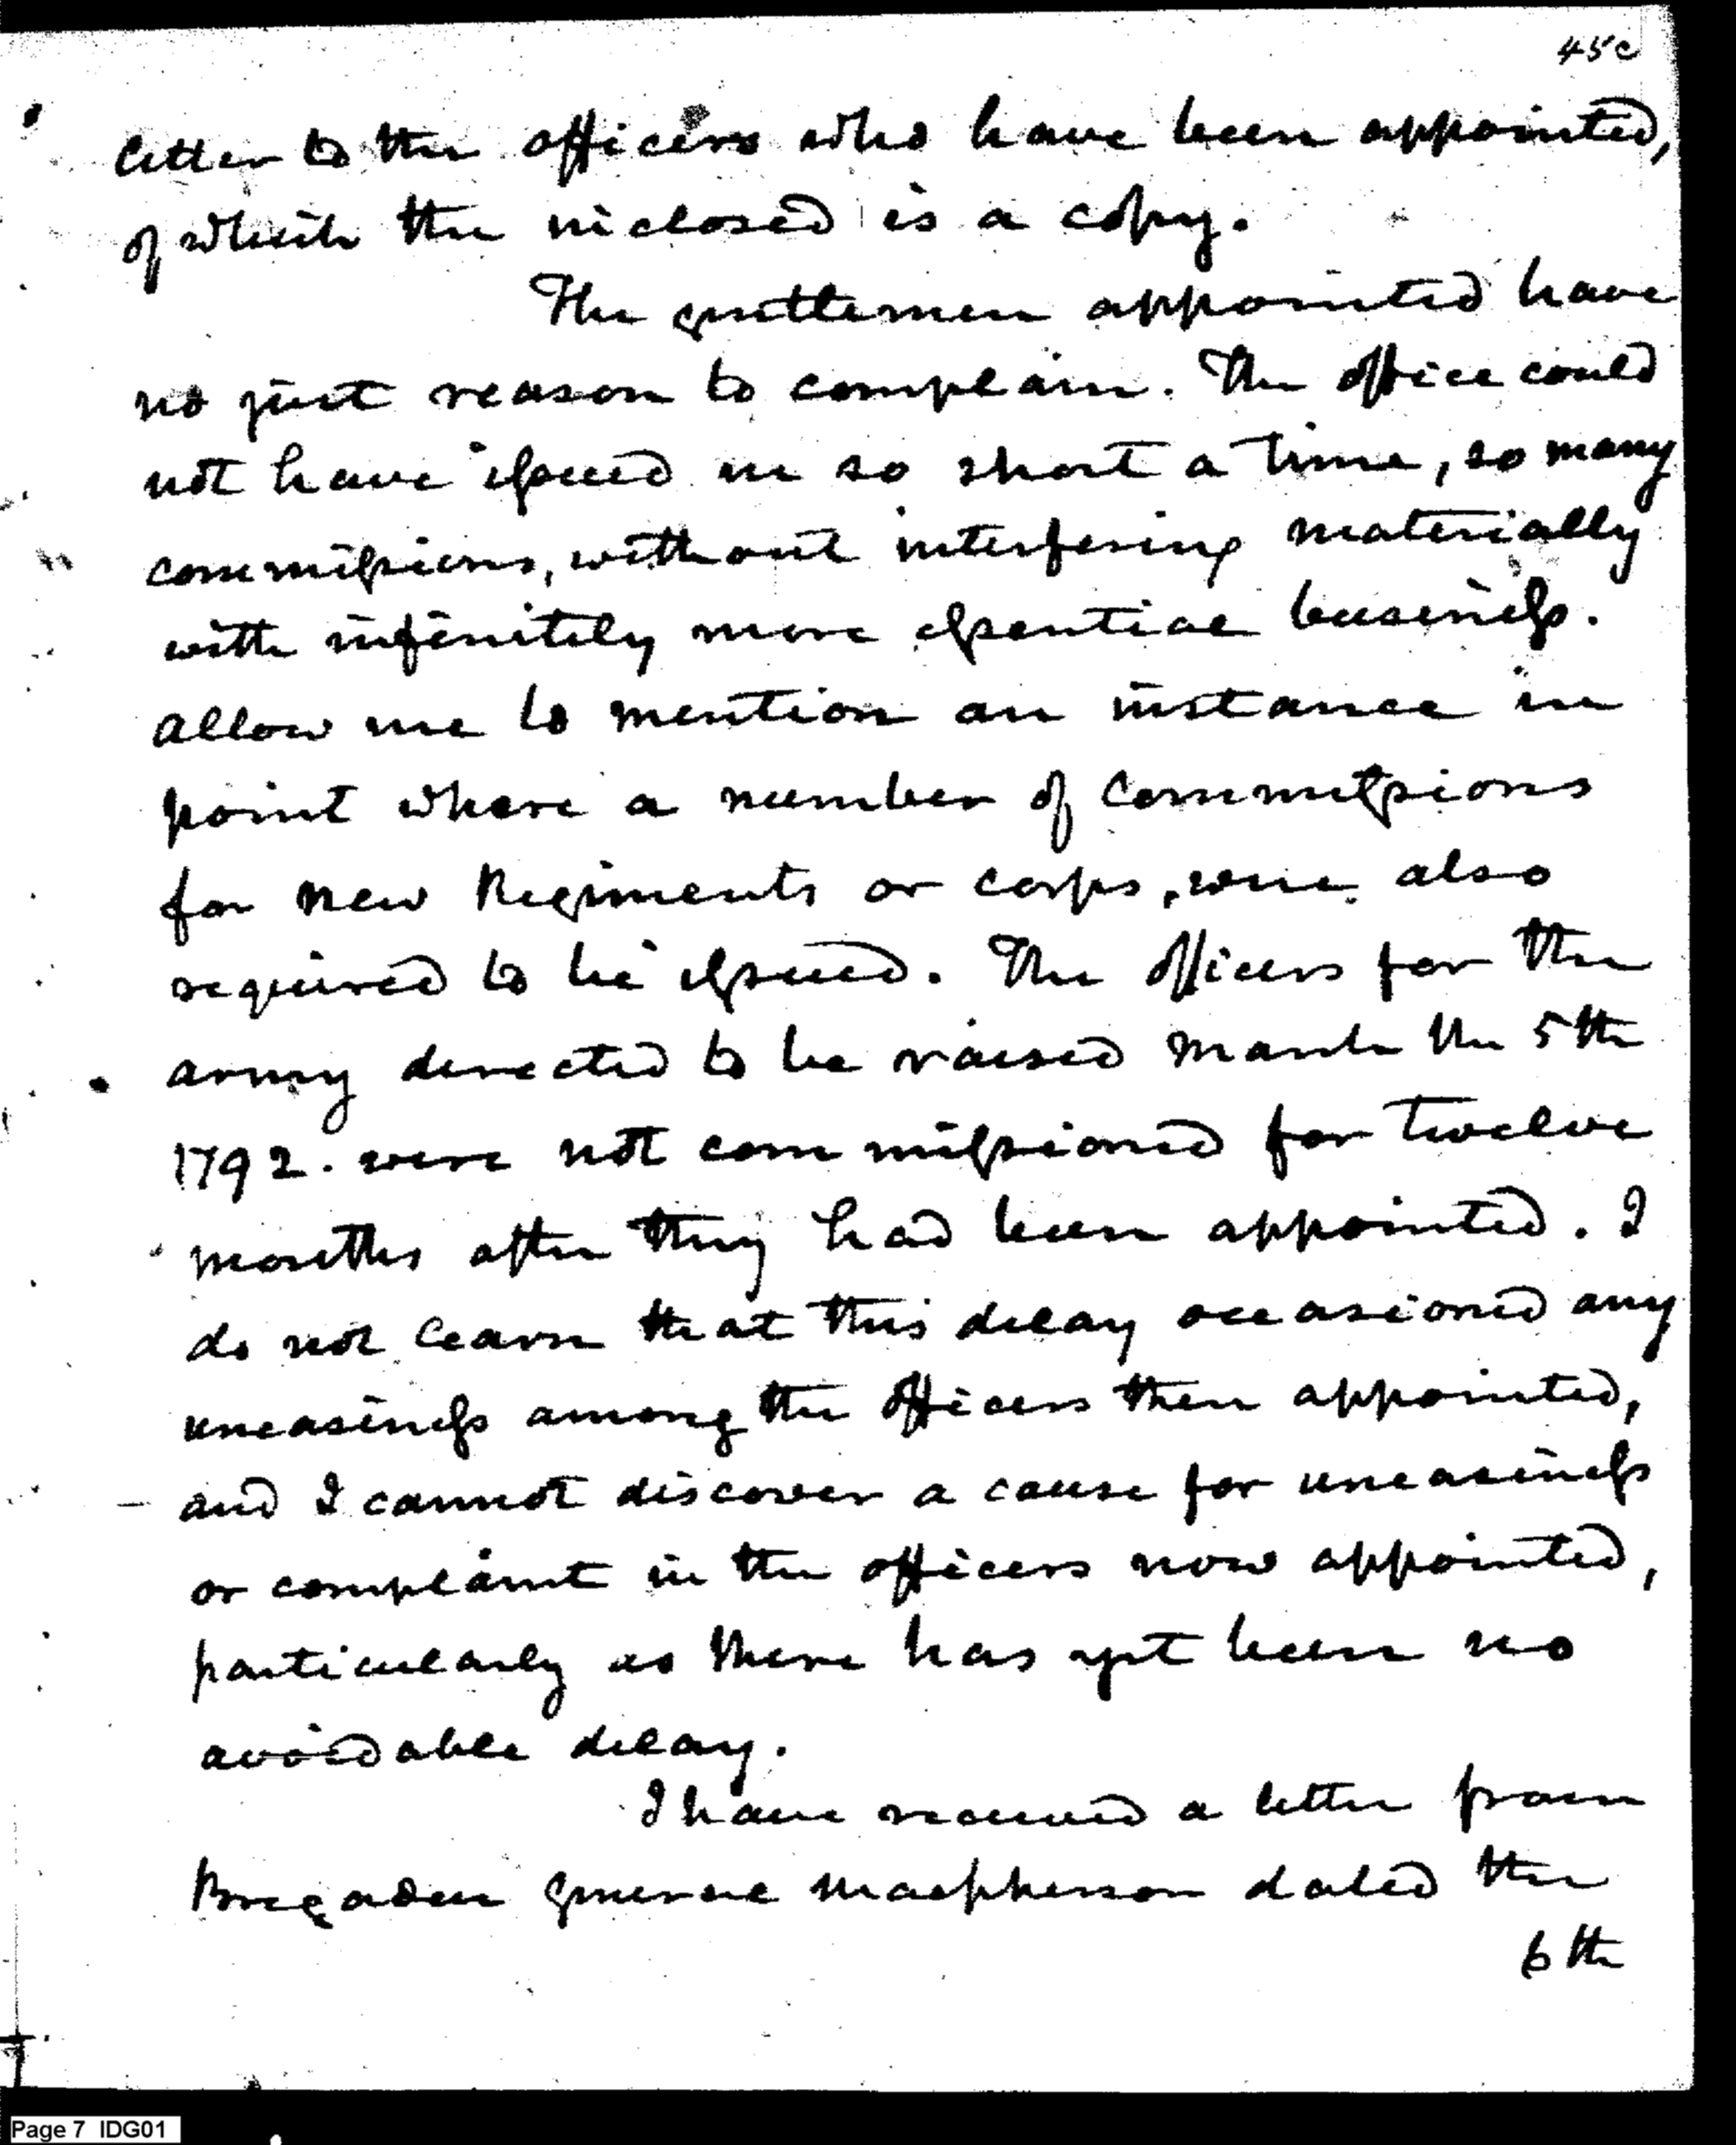 45c
letter to the officers who have been appointed,
of which the inclosed is a copy.
The gentlemen appointed have
no just reason to complain. The office could
not have issued in so short a time, so many
commissions, without interfering materially
with infinitely more essential business.
allow me to mention an instance in
point where a number of Commissions
for new Regiments or corps, were also
required to be issued. The officers for the
army directed to be raised March the 5th
1792. were not commissioned for twelve
months after they had been appointed. I
do not learn that this delay occasioned any
uneasiness among the officers then appointed,
and I cannot discover a cause for uneasiness
or complaint in the officers now appointed,
particularly as there has yet been no
avoidable delay.
I have received a letter from
Brigadier general Macpherson dated the
6th
Page 7 IDG01